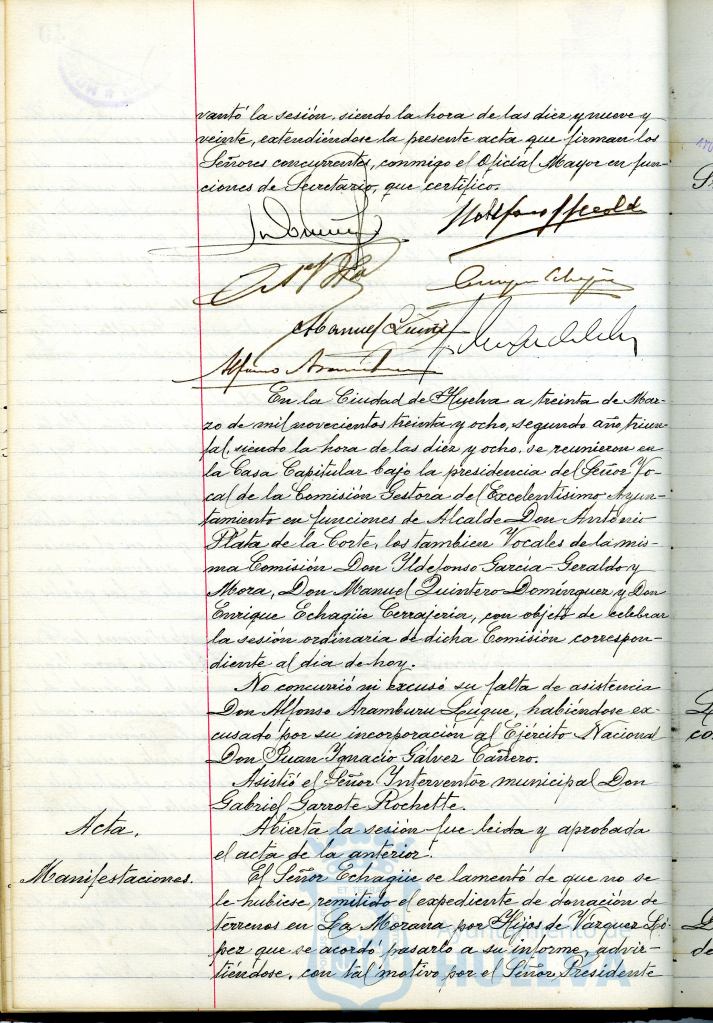 vantó la sesión, siendo la hora de las diez y nueve y
veinte, extendiéndose la presente acta que firman los
Señores concurrentes, conmigo el Oficial Mayor en fun-
ciones de Secretario, que certifico.
Manuel Quint
Alfonso Aramburu
En la Ciudad de Huelva a treinta de Mar-
zo de mil novecientos treinta y ocho, segundo año triun-
fal, siendo la hora de las diez y ocho, se reunieron en
la Casa Capitular bajo la presidencia del Señor Vo-
cal de la Comisión Gestora del Excelentísimo Ayun-
tamiento en funciones de Alcalde Don Antonio
Plata de la Corte, los tambien Vocales de la mis-
ma Comisión Don Ildefonso García-Geraldo y
Mora, Don Manuel Quintero Domínguez y Don
Enrique Echagüe Cerrajería, con objeto de celebrar
la sesión ordinaria de dicha Comisión correspon-
diente al dia de hoy.
No concurrió ni excusó su falta de asistencia
Don Alfonso Aramburu Luque, habiéndose ex-
cusado por su incorporación al Ejército Nacional
Don Juan Ignacio Gálvez Cañero.
Asistió el Señor Interventor municipal Don
Gabriel Garrote Rochette.
Acta.
Abierta la sesión fue leida y aprobada
el acta de la anterior.
Manifestaciones.
El Señor Echagüe se lamentó de que no se
le hubiese remitido el expediente de donación de
terrenos en La Morana por Hijos de Vázquez Ló-
pez que se acordó pasarlo a su informe, advir-
tiéndose, con tal motivo por el Señor Presidente
Ayuntamiento de
HUELVA